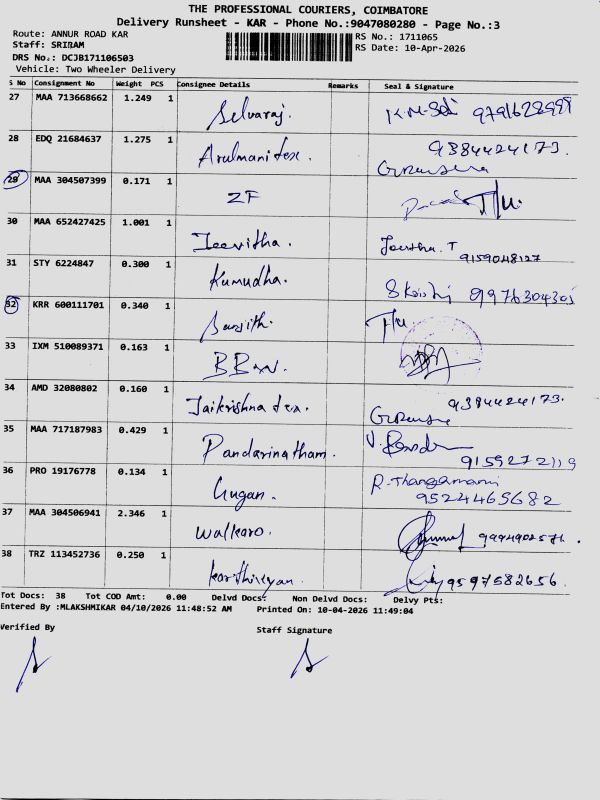 THE PROFESSIONAL COURIERS, COIMBATORE
Delivery Runsheet - KAR - Phone No.:9047080280 - Page No.:3
Route: ANNUR ROAD KAR
RS No.: 1711065
Staff: SRIRAM
RS Date: 10-Apr-2026
DRS No.: DCJB171106503
Vehicle: Two Wheeler Delivery
S No Consignment No Weight PCS Consignee Details Remarks Seal & Signature
27 MAA 713668662 1.249 1 Selvaraj.
28 EDQ 21684637 1.275 1 Arulmani tex. 9384424173.
29 MAA 304507399 0.171 1 ZF
30 MAA 652427425 1.001 1 Jeevitha. 9159048127
31 STY 6224847 0.300 1 Kumudha. 9976304305
32 KRR 600111701 0.340 1
33 IXM 510089371 0.163 1
34 AMD 32080802 0.160 1 Jaikrishna tex. 9384424173.
35 MAA 717187983 0.429 1 Pandarinatham. 9159272119
36 PRO 19176778 0.134 1 Gugan. R. Thangamani
9524465682
37 MAA 304506941 2.346 1 Walkaro. 9994902571.
38 TRZ 113452736 0.250 1 9597582656.
Tot Docs: 38 Tot COD Amt: 0.00 Delvd Docs: Non Delvd Docs: Delvy Pts:
Entered By :MLAKSHMIKAR 04/10/2026 11:48:52 AM Printed On: 10-04-2026 11:49:04
Verified By Staff Signature